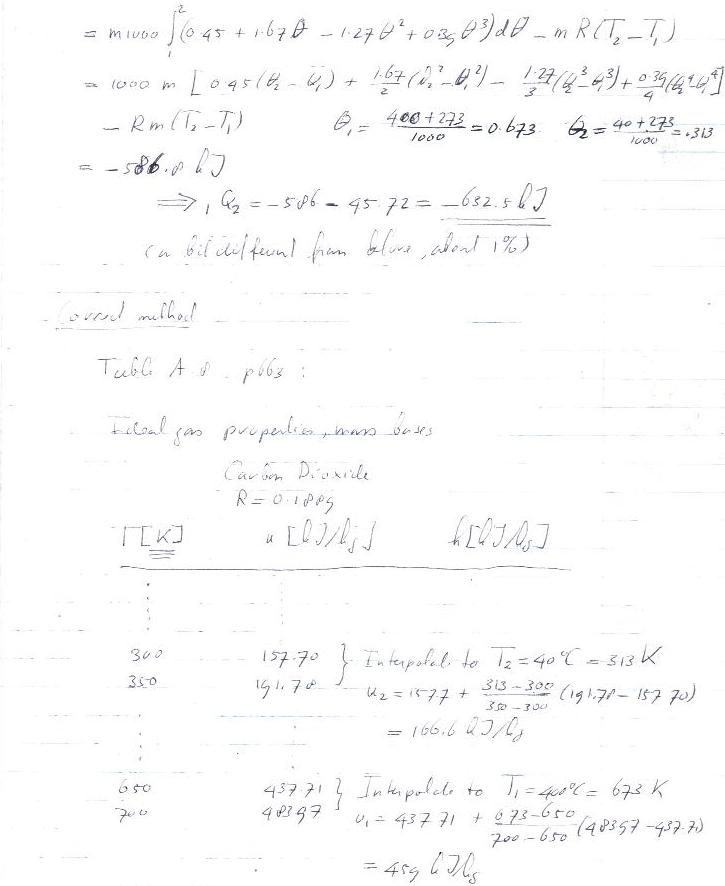 = m1000 ∫₁² (0.45 + 1.67θ − 1.27θ² + 0.39θ³) dθ − mR(T₂ − T₁)
= 1000 m [0.45(θ₂ − θ₁) + 1.67/2 (θ₂² − θ₁²) − 1.27/3 (θ₂³ − θ₁³) + 0.39/4 (θ₂⁴ − θ₁⁴)]
− Rm(T₂ − T₁) θ₁ = 400+273/1000 = 0.673 θ₂ = 40+273/1000 = .313
= −586.8 kJ
⟹ ₁Q₂ = −586 − 45.72 = −632.5 kJ
(a bit different from before, about 1%)
Correct method
Table A.8. p663 :
Ideal gas properties, mass bases
Carbon Dioxide
R = 0.1889
T[K] u [kJ/kg] h[kJ/kg]
300 157.70 } Interpolate to T₂ = 40°C = 313 K
350 191.78 u₂ = 157.7 + 313−300/350−300 (191.78 − 157.70)
= 166.6 kJ/kg
650 437.71 } Interpolate to T₁ = 400°C = 673 K
700 483.97 u₁ = 437.71 + 673−650/700−650 (483.97 − 437.71)
= 459 kJ/kg